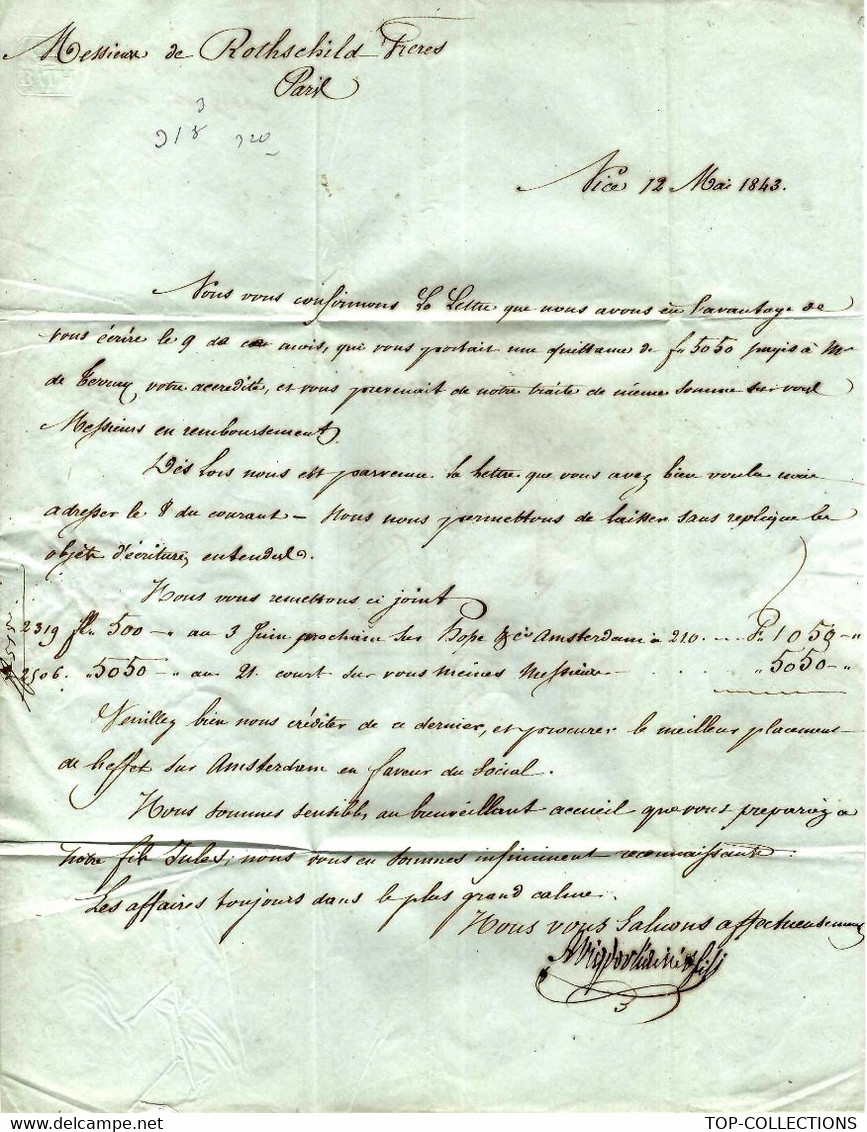 Messieurs de Rothschild Frères
Paris
3
318 320
Nice 12 Mai 1843.
Nous vous confirmons la Lettre que nous avons eu l'avantage de
vous écrire le 9 de ce mois, qui vous portait une quittance de f 5050 payés à Mr
de votre accrédité, et vous prevenait de notre traite de même somme sur vous
Messieurs en remboursement.
Dès lors nous est parvenue la lettre que vous avez bien voulu nous
adresser le 8 du courant – Nous nous permettons de laisser sans replique les
objets d'écriture, entendus.
Nous vous remettons ci joint
2319 fl. 500 -" au 3 Juin prochain sur Hope & Co Amsterdam à 210 .... F. 1050 -"
2506. "5050 -" au 21 court sur vous mêmes Messieurs . . . " 5050 -"
Veuillez bien nous créditer de ce dernier, et procurer le meilleur placement
de l'effet sur Amsterdam en faveur du Social.
Nous sommes sensibles au bienveillant accueil que vous preparez a
notre fils Jules, nous vous en sommes infiniment reconnaissants.
Les affaires toujours dans le plus grand calme.
Nous vous Saluons affectueusement
Avigdor l'aîné & fils
TOP-COLLECTIONS